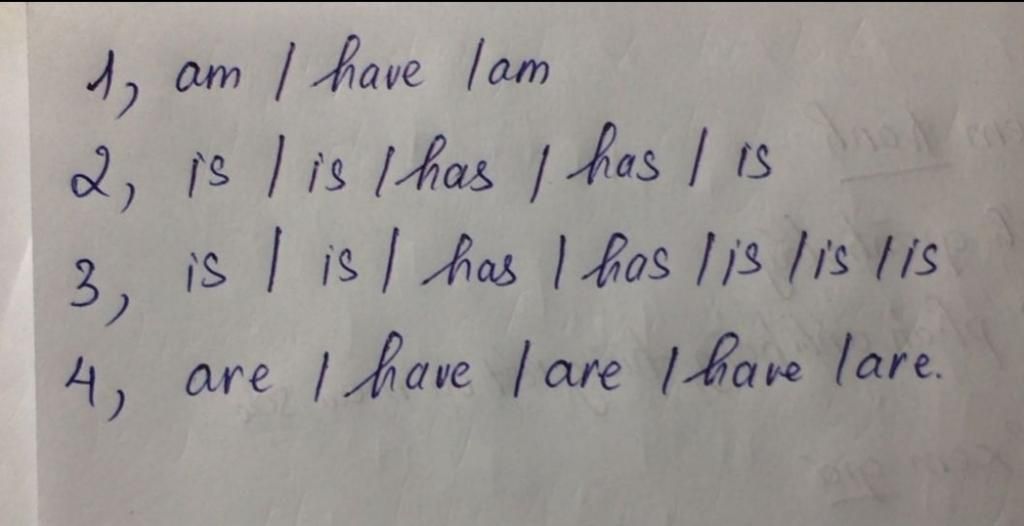 1, am / have / am
2, is / is / has / has / is
3, is / is / has / has / is / is / is
4, are / have / are / have / are.